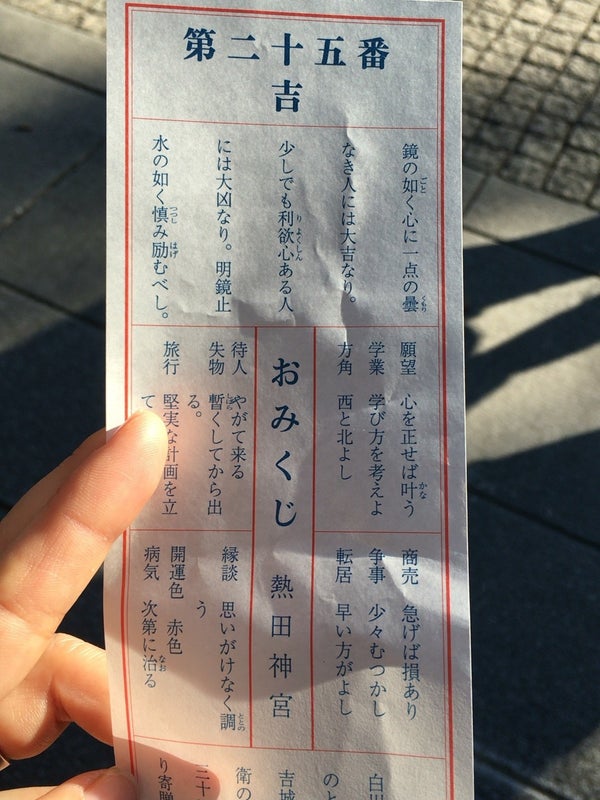 第二十五番
吉
鏡の如く心に一点の曇
なき人には大吉なり。
少しでも利欲心ある人
には大凶なり。明鏡止
水の如く慎み励むべし。
願望 心を正せば叶う
学業 学び方を考えよ
方角 西と北よし
商売 急げば損あり
争事 少々むつかし
転居 早い方がよし
おみくじ 熱田神宮
待人 やがて来る
失物 暫くしてから出
る。
旅行 堅実な計画を立
て
縁談 思いがけなく調
う
開運色 赤色
病気 次第に治る
白川
のと
吉城
衛の
三十
り寄贈